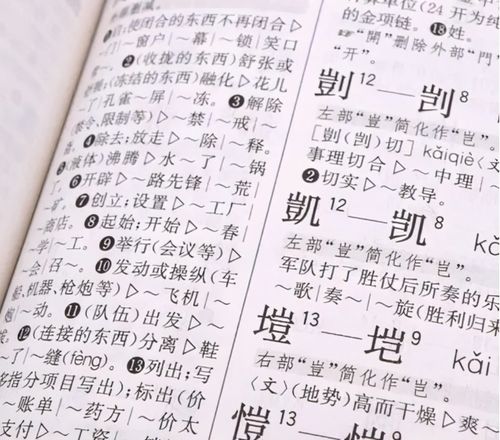 启;使闭合的东西不再闭合
门|～窗户|～幕|～锁|笑口
～。❷(收拢的东西)舒张或
(冻结的东西)融化▷花儿
～了|孔雀～屏|～冻。❸解除
令、限制等)▷～禁|～戒|～
❹除去;放走▷～除|～释。
液体)沸腾▷水～了|～锅
❻开辟▷～路先锋|～荒|
矿。❼创立;设置▷～工厂|
商店。❽起始;开始▷～春|
～学|～工。❾举行(会议等)▷
～会|召～。❿发动或操纵(车
船、机器、枪炮等)▷～飞机|～
炮|～动。⓫(队伍)出发▷～
拔。⓬(连接的东西)分离▷鞋
～了|～缝(fèng)。⓭列出;写
多指分项目写出);标出(价
～账单|～药方|～价太
支付▷～工资
单位(24开为纯
的金项链。⓲姓。
“開”删除外部“門”
“开”。
剴12—剀8
左部“豈”简化作“岂”。
[剴(剀)切] kǎiqiè〈文
事理切合▷～中理|～
❷切实▷～教导。
凱12—凯8
左部“豈”简化作“岂”。
军队打了胜仗后所奏的乐
～歌|奏～|～旋(胜利归来
塏13—垲9 kǎi
右部“豈”简化作“岂”。
〈文〉(地势)高而干燥▷爽～
愷13 恺9